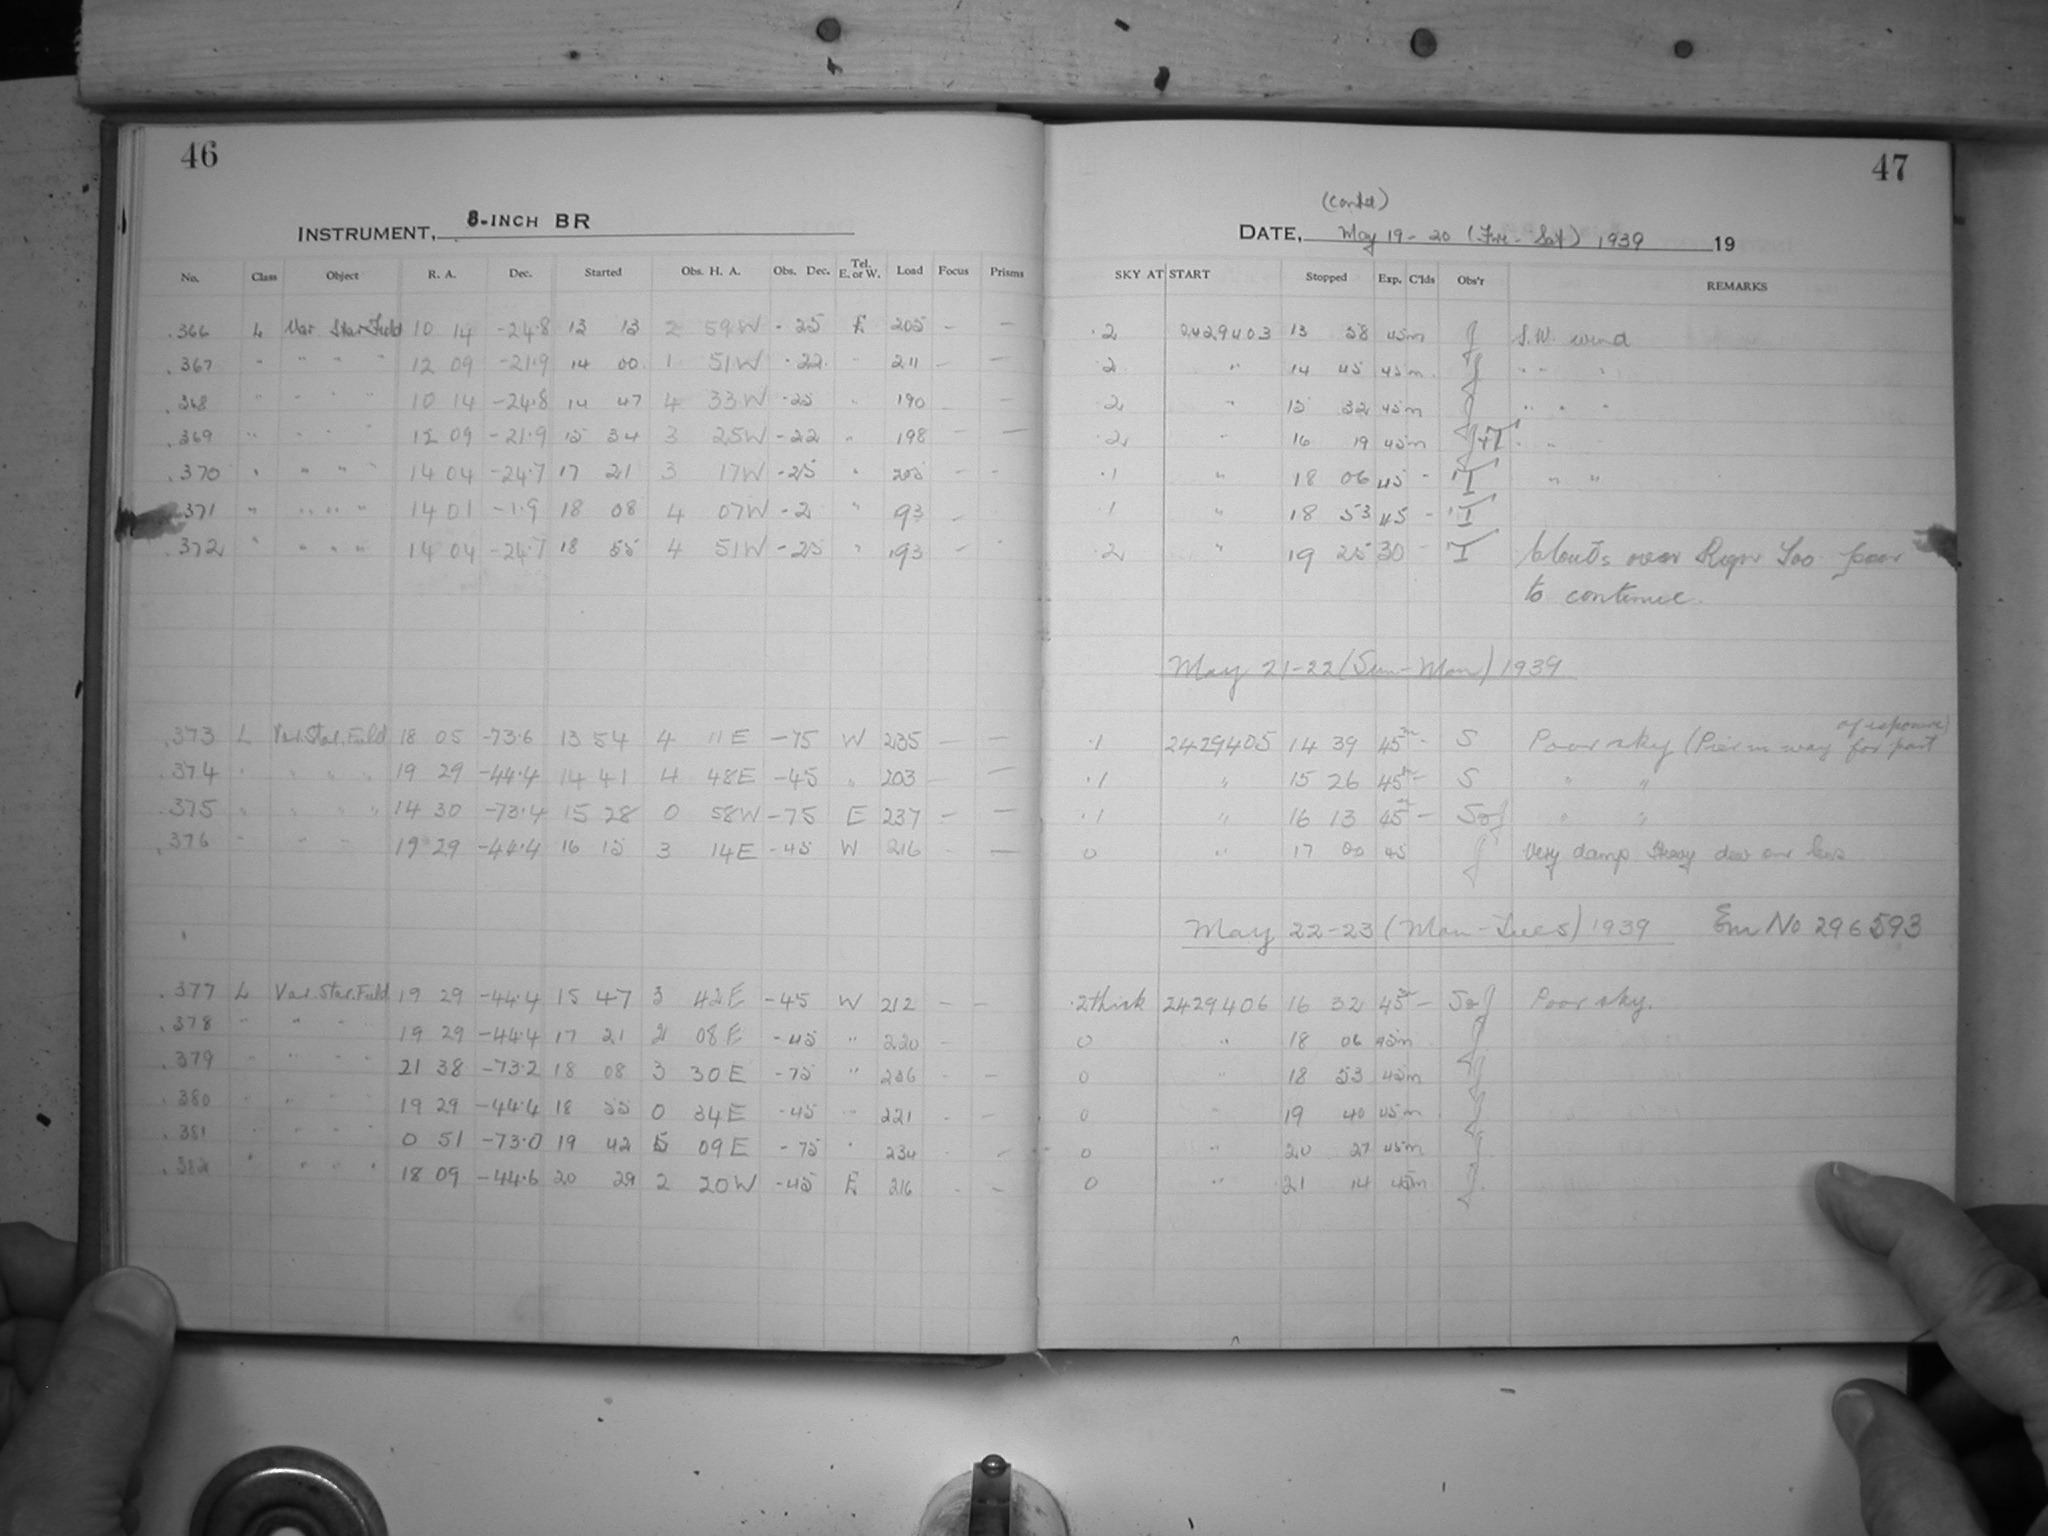 46
INSTRUMENT, 8-INCH BR
No. Class Object R. A. Dec. Started Obs. H. A. Obs. Dec. Tel. E. or W. Load Focus Prisms
.366 L Var. Star Field 10 14 -24.8 13 13 2 59W -25 E 205 — —
.367 " " " " 12 09 -21.9 14 00 1 51W -22 " 211 — —
.368 " " " " 10 14 -24.8 14 47 4 33W -25 " 190 — —
.369 " " " " 12 09 -21.9 15 34 3 25W -22 " 198 — —
.370 " " " " 14 04 -24.7 17 21 3 17W -25 " 205 — —
.371 " " " " 14 01 -1.9 18 08 4 07W -2 " 93 —
.372 " " " " 14 04 -24.7 18 55 4 51W -25 " 193 — -
.373 L Var. Star. Field 18 05 -73.6 13 54 4 11E -75 W 235 — —
.374 " " " " 19 29 -44.4 14 41 4 48E -45 " 203 — —
.375 " " " " 14 30 -73.4 15 28 0 58W -75 E 237 — —
.376 " " " " 19 29 -44.4 16 15 3 14E -45 W 216 — —
.377 L Var. Star. Field 19 29 -44.4 15 47 3 42E -45 W 212 — —
.378 " " " " 19 29 -44.4 17 21 2 08E -45 " 220 -
.379 " " " " 21 38 -73.2 18 08 3 30E -75 " 236 - —
.380 " " " " 19 29 -44.4 18 55 0 34E -45 " 221 - —
.381 " " " " 0 51 -73.0 19 42 5 09E -75 " 234 - —
.382 " " " " 18 09 -44.6 20 29 2 20W -45 E 216 - —
47
(contd)
DATE, May 19-20 (Fri-Sat) 1939 19
SKY AT START Stopped Exp. C'lds Obs'r REMARKS
.2 2429403 13 58 45m J S.W. wind
.2 " 14 45 45m J " " "
.2 " 15 32 45m J " " "
.2 " 16 19 45m J+T " "
.1 " 18 06 45 - T " "
.1 " 18 53 45 - T
.2 " 19 25 30 - T Clouds over Region Too poor
to continue.
May 21-22 (Sun-Mon) 1939
.1 2429405 14 39 45m — S Poor sky (Pier in way for part of exposure)
.1 " 15 26 45m — S " "
.1 " 16 13 45m — S&J " "
0 " 17 00 45 J Very damp Heavy dew on lens
May 22-23 (Mon-Tues) 1939 Em No 296593
.2 thick 2429406 16 32 45m — S&J Poor sky.
0 " 18 06 45m J
0 " 18 53 45m J
0 " 19 40 45m J
0 " 20 27 45m J
0 " 21 14 45m J